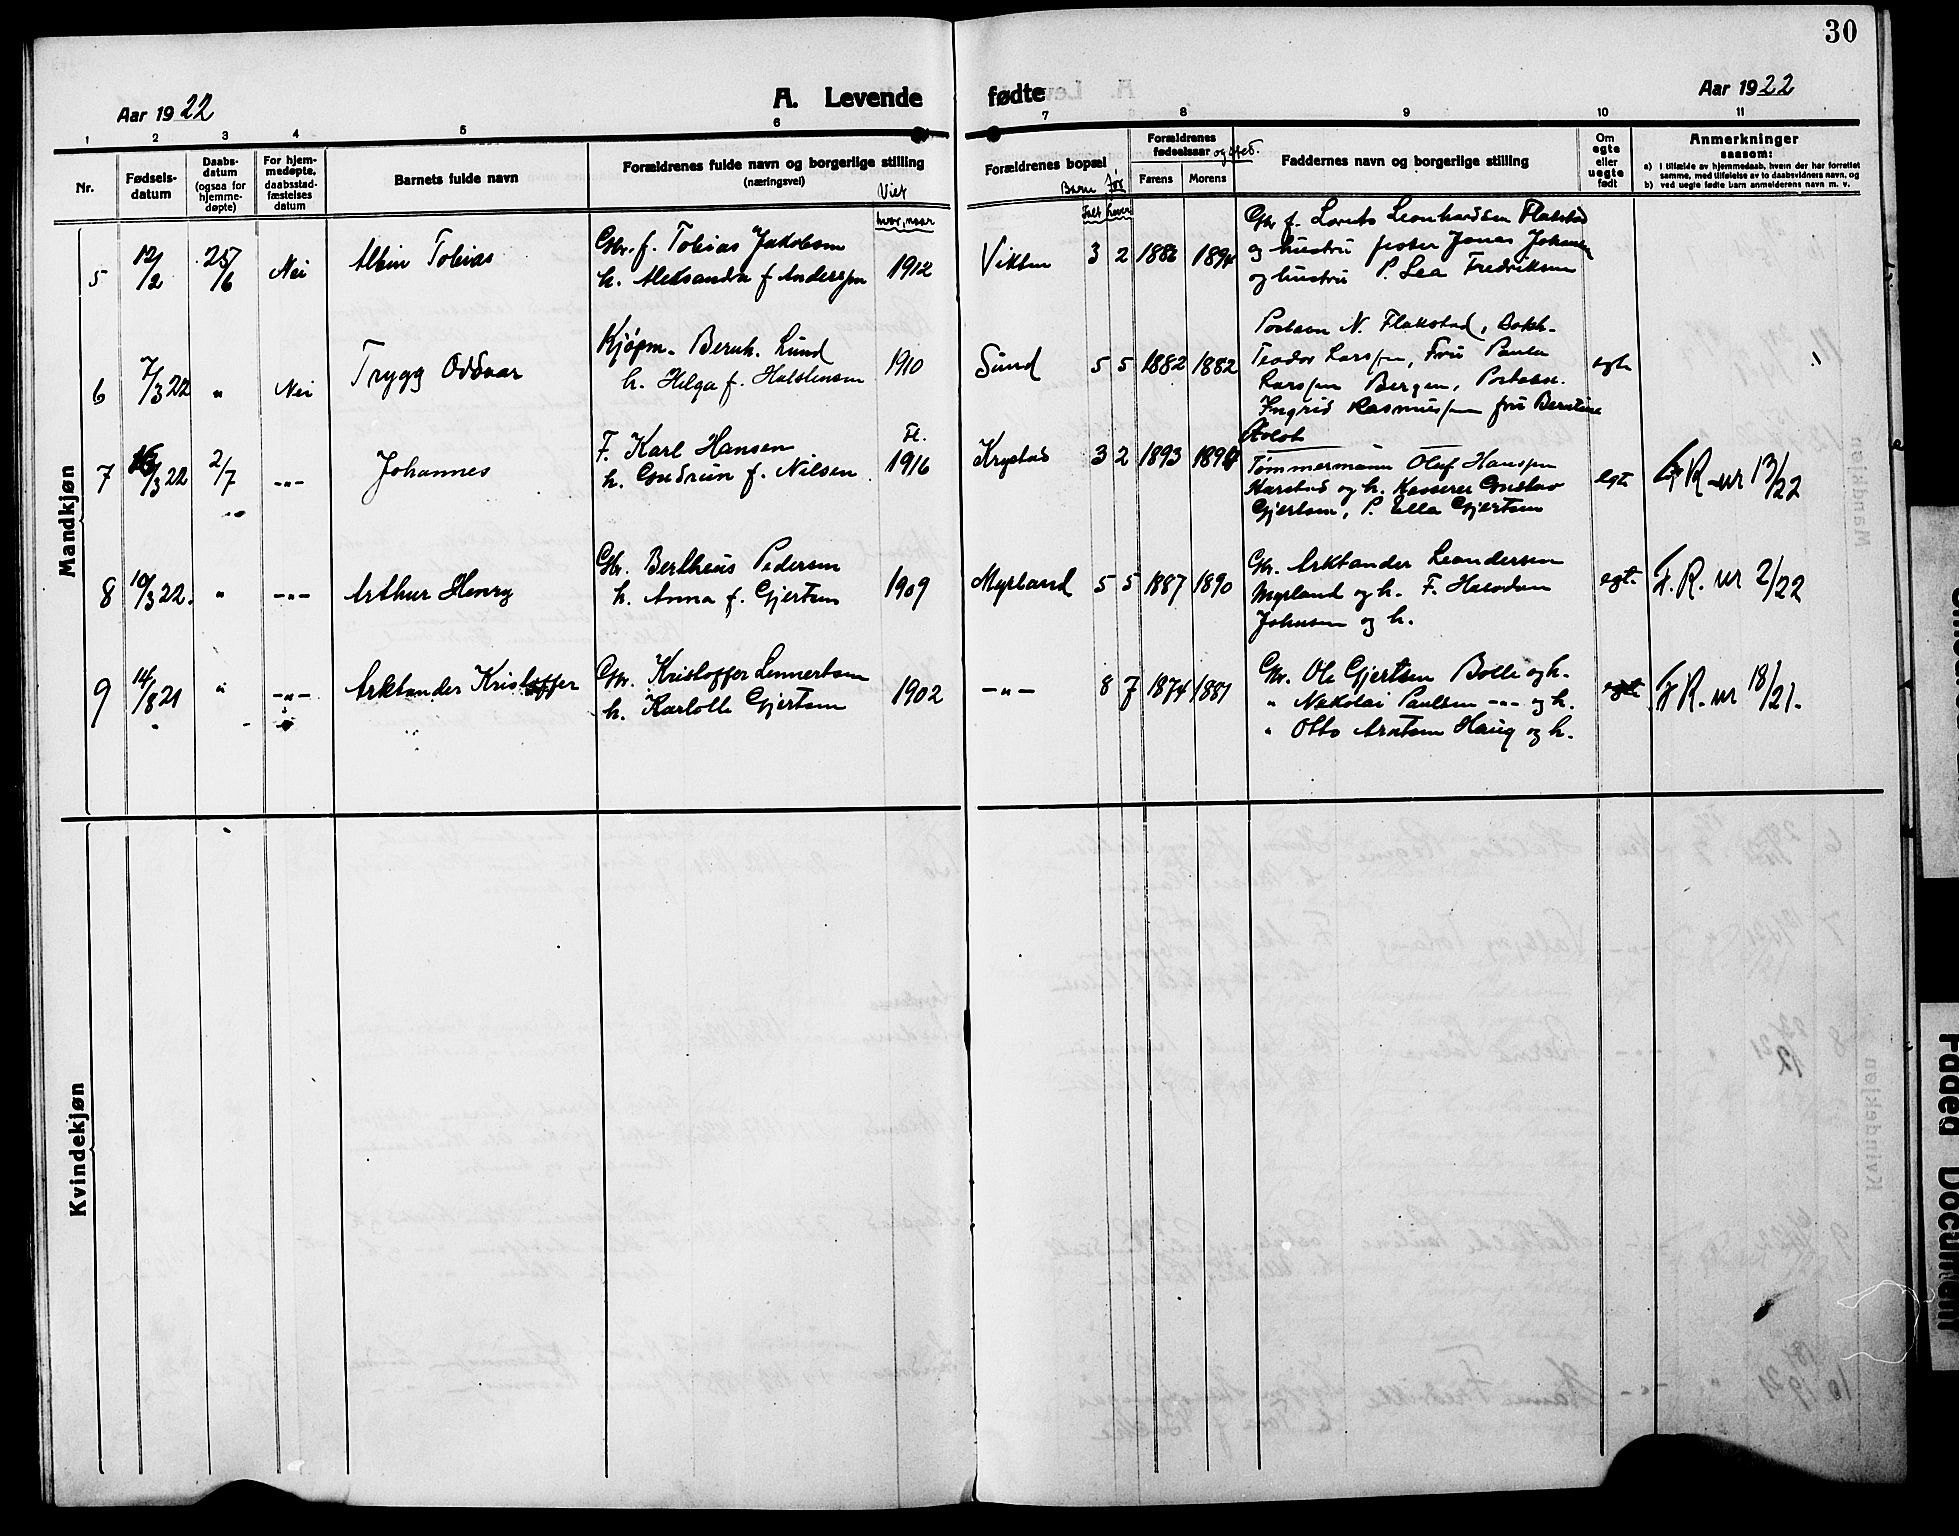 30
Aar 1922
A. Levende fødte
Aar 1922
1 2 3 4 5 6 7 8 9 10 11
Nr.
Fødsels-
datum
Daabs-
datum
(ogsaa for
hjemme-
døpte)
For hjem-
medøpte,
daabsstad-
fæstelses
datum
Barnets fulde navn
Forældrenes fulde navn og borgerlige stilling
(næringsvei)
Viet
hvor, naar
Forældrenes bopæl
Barn før
Født Lever
Forældrenes
fødselsaar og sted.
Farens Morens
Faddernes navn og borgerlige stilling
Om
egte
eller
uegte
født
Anmerkninger
saasom:
a) I tilfælde av hjemmedaab, hvem der har forrettet
samme, med tilføielse av to daabsvidners navn, og
b) ved uegte fødte barn anmelderens navn m. v.
Mandkjøn
5 12/2 25/6 Nei Albin Tobias
Gbr. f. Tobias Jakobsen
h. Aleksandra f. Anderssen 1912
Vikten 3 2 1886 1894
Gbr f. Lorents Leonhardsen Flakstad
og hustru fisker Jonas Johansen
og hustru P. Lea Fredriksen
6 7/3 22 " Nei Trygg Oddvar
Kjøpm. Bernh. Lund 1910
h. Helga f. Halstensen
Sund 5 5 1882 1882
Postaen N. Flakstad, Bokh.
Teodor Larssen, Fru Paula
Larssen Bergen, Postabe.
Ingrid Rasmussen fru Berntine
egte
7 /3 22 2/7 -"- Johannes
F. Karl Hansen Fl.
h. Gudrun f. Nilsen 1916
Krystad 3 2 1893 1894
Tømmermann Oluf Hanssen
Karstad og h. Kasserer Gustav
Gjertsen, P. Ella Gjertsen
egt F.R. nr 13/22
8 10/3 22. " -"- Arthur Henry
Gbr. Bertheus Pedersen
h. Anna f. Gjertsen 1909
Myrland 5 5 1887 1890
Gbr. Arktander Leandersen
Myrland og h. F. Halvdan
Johnsen og h.
egt. F.R. nr 2/22
9 14/8 21 " -"- Arktander Kristoffer
Gbr. Kristoffer Lennertsen
h. Karlotte Gjertsen 1902
-"- 8 7 1874 1881
Gbr. Ole Gjertsen Bolle og h.
" Nikolai Paulsen -"- og h.
" Otto Arntsen Haug og h.
egt F.R. nr 18/21.
Kvindekjøn
Faded Document